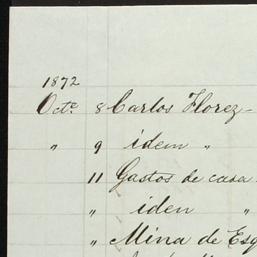 1872
Octe. 8 Carlos Florez -
" 9 idem "
11 Gastos de casa
" iden "
" Mina de Esq